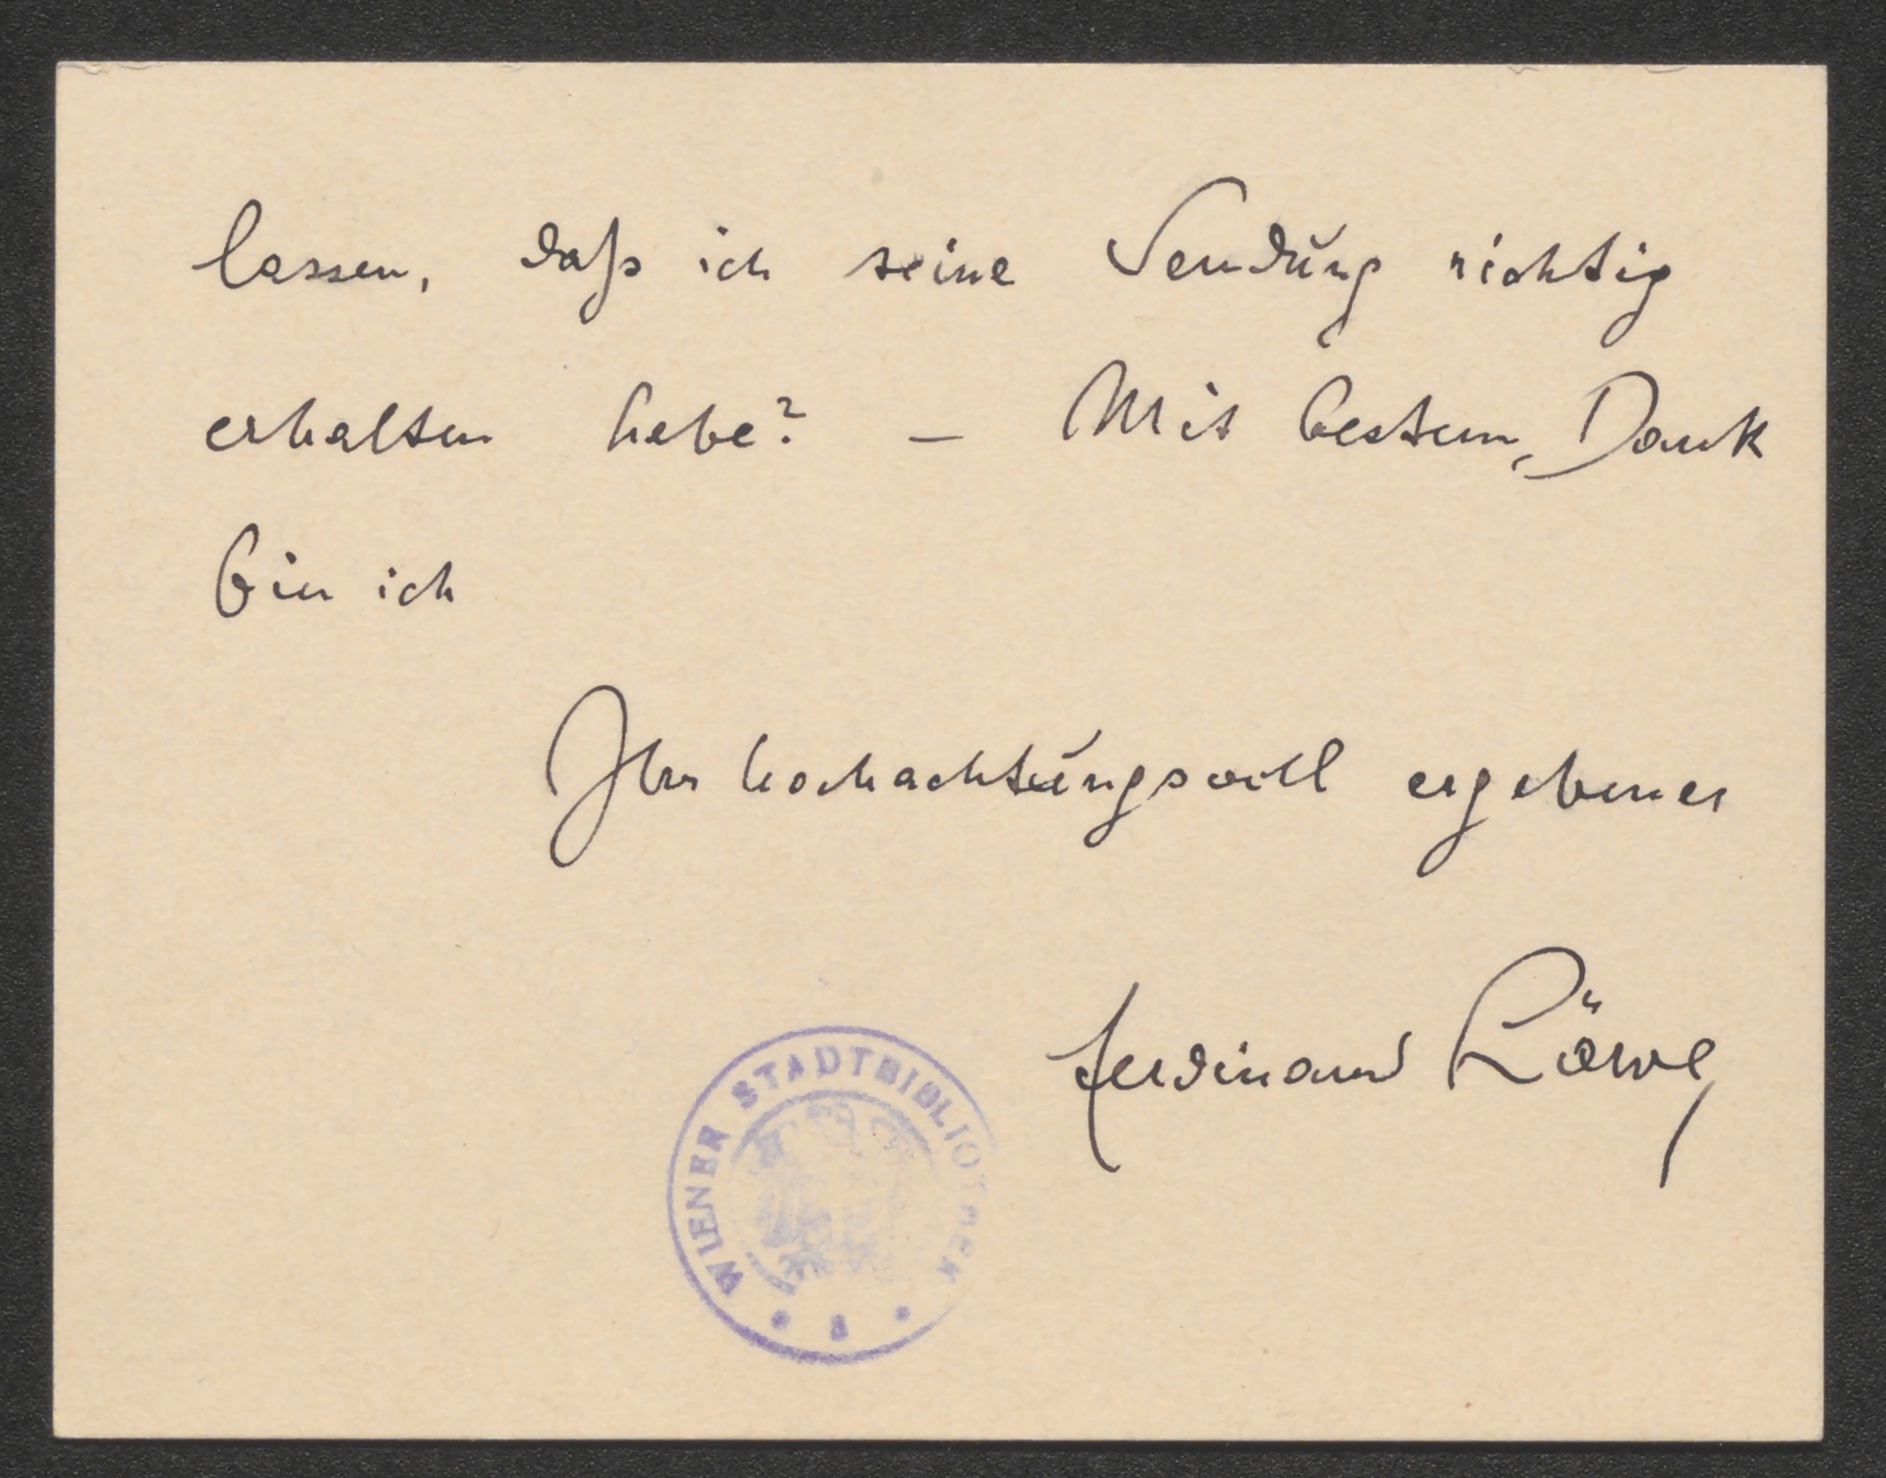 lassen, daß ich seine Sendung richtig
erhalten habe? — Mit bestem Dank
bin ich
Ihr hochachtungsvoll ergebener
Ferdinand Löwe
WIENER STADTBIBLIOTHEK